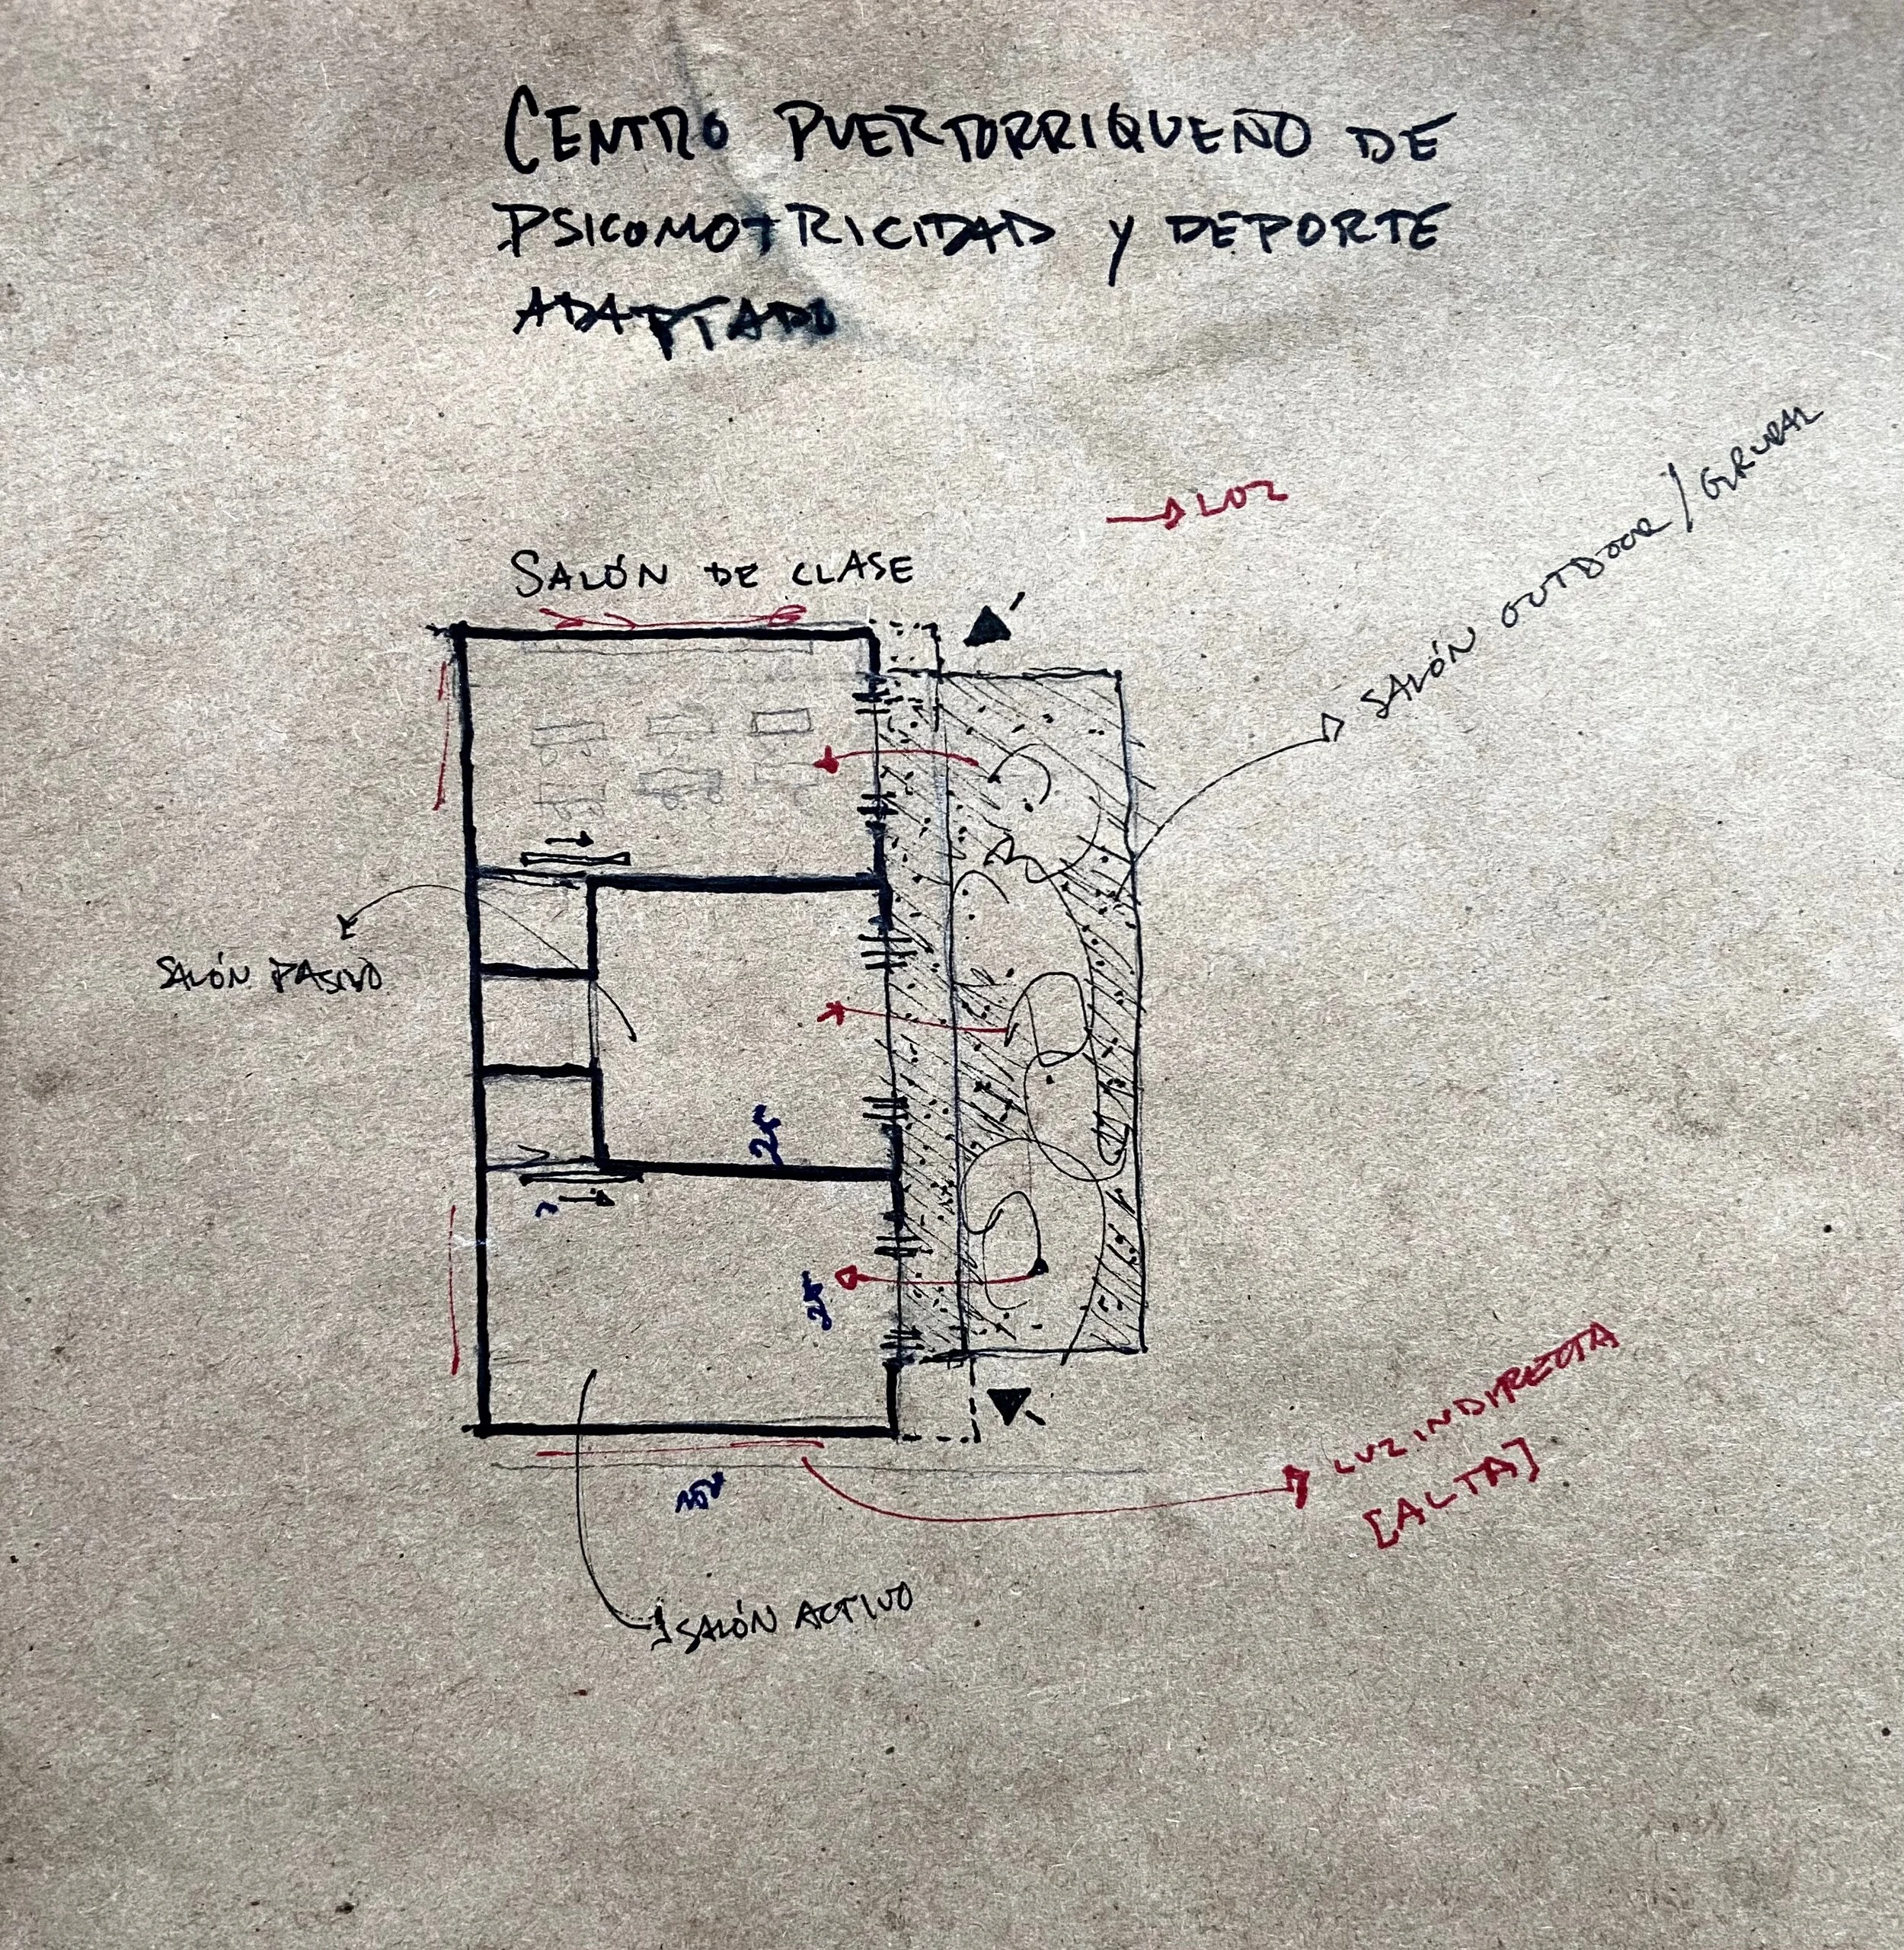 CENTRO PUERTORRIQUEÑO DE
PSICOMOTRICIDAD Y DEPORTE
ADAPTADO
LUZ
SALÓN OUTDOOR / GRUPAL
SALÓN DE CLASE
SALÓN PASIVO
LUZ INDIRECTA
[ALTA]
SALÓN ACTIVO